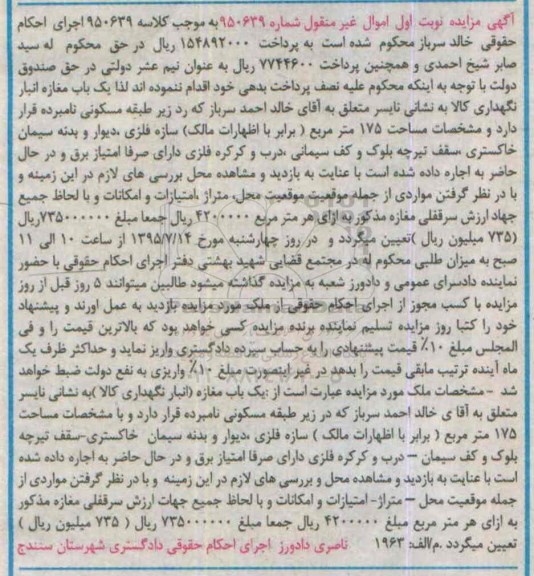 آگهی مزایده نوبت اول اموال غیر منقول شماره ۹۵۰۶۳۹ به موجب کلاسه ۹۵۰۶۳۹ اجرای احکام
حقوقی خالد سرباز محکوم شده است به پرداخت ۱۵۴۸۹۲۰۰۰ ریال در حق محکوم له سید
صابر شیخ احمدی و همچنین پرداخت ۷۷۴۴۶۰۰ ریال به عنوان نیم عشر دولتی در حق صندوق
دولت با توجه به اینکه محکوم علیه نصف پرداخت بدهی خود اقدام ننموده اند لذا یک باب مغازه انبار
نگهداری کالا به نشانی نایسر متعلق به آقای خالد احمد سرباز که رد زیر طبقه مسکونی نامبرده قرار
دارد و مشخصات مساحت ۱۷۵ متر مربع ( برابر با اظهارات مالک) سازه فلزی ،دیوار و بدنه سیمان
خاکستری ،سقف تیرچه بلوک و کف سیمانی ،درب و کرکره فلزی دارای صرفا امتیاز برق و در حال
حاضر به اجاره داده شده است با عنایت به بازدید و مشاهده محل بررسی های لازم در این زمینه و
با در نظر گرفتن مواردی از جمله موقعیت موقعیت محل، متراژ ،امتیازات و امکانات و با لحاظ جمیع
جهاد ارزش سرقفلی مغازه مذکور به ازای هر متر مربع ۴۲۰۰۰۰۰ ریال جمعا مبلغ ۷۳۵۰۰۰۰۰۰ریال
(۷۳۵ میلیون ریال )تعیین میگردد و در روز چهارشنبه مورخ ۱۳۹۵/۷/۱۴ از ساعت ۱۰ الی ۱۱
صبح به میزان طلبی محکوم له در مجتمع قضایی شهید بهشتی دفتر اجرای احکام حقوقی با حضور
نماینده دادسرای عمومی و دادورز شعبه به مزایده گذاشته میشود طالبین میتوانند ۵ روز قبل از روز
مزایده با کسب مجوز از اجرای احکام حقوقی از ملک مورد مزایده بازدید به عمل اورند و پیشنهاد
خود را کتبا روز مزایده تسلیم نماینده برنده مزایده کسی خواهد بود که بالاترین قیمت را و فی
المجلس مبلغ ۱۰٪ قیمت پیشنهادی را به حساب سپرده دادگستری واریز نماید و حداکثر ظرف یک
ماه آینده ترتیب مابقی قیمت را بدهد در غیر اینصورت مبلغ ۱۰٪ واریزی به نفع دولت ضبط خواهد
شد - مشخصات ملک مورد مزایده عبارت است از :یک باب مغازه (انبار نگهداری کالا )به نشانی نایسر
متعلق به آقا ی خالد احمد سرباز که در زیر طبقه مسکونی نامبرده قرار دارد و با مشخصات مساحت
۱۷۵ متر مربع ( برابر با اظهارات مالک ) سازه فلزی ،دیوار و بدنه سیمان خاکستری-سقف تیرچه
بلوک و کف سیمان – درب و کرکره فلزی دارای صرفا امتیاز برق و در حال حاضر به اجاره داده شده
است با عنایت به بازدید و مشاهده محل و بررسی های لازم در این زمینه و با در نظر گرفتن مواردی از
جمله موقعیت محل – متراژ- امتیازات و امکانات و با لحاظ جمیع جهات ارزش سرقفلی مغازه مذکور
به ازای هر متر مربع مبلغ ۴۲۰۰۰۰۰ ریال جمعا مبلغ ۷۳۵۰۰۰۰۰۰ ریال ( ۷۳۵ میلیون ریال )
تعیین میگردد .م/الف: ۱۹۶۳ ناصری دادورز اجرای احکام حقوقی دادگستری شهرستان سنندج